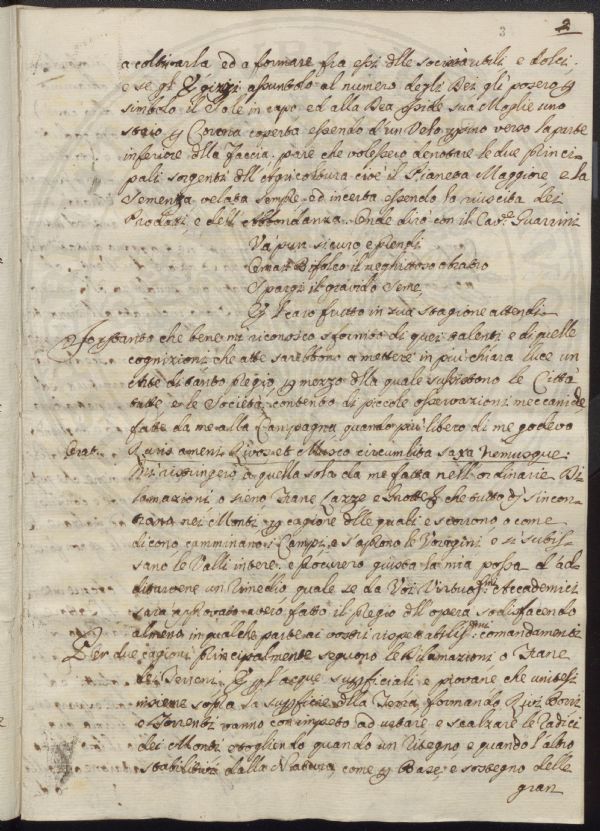 3 2
a coltivarla ed a formare fra essi delle società utili e dolci;
e se gl' Egizzi assunsolo al numero degli Dei gli posero per
simbolo il Sole in capo ed alla Dea Iside sua Moglie uno
staro per Corona coperta essendo d'un Velo perfino verso la parte
inferiore della faccia, pare che volessero denotare le due princi-
pali sorgenti dell' Agricoltura cioè il Pianeta Maggiore, e la
Semenza, velata sempre ed incerta essendo la riuscita dei
Prodotti, e dell' Abbondanza. Onde dirò con il Cav.re Guarrini
Va pur sicuro e prendi
Omai Bifolco il neghittoso aratro
Spargi il gravido seme,
E il caro frutto in sua stagione attendi.
Io pertanto che bene mi riconosco sfornito di quei talenti e di quelle
cognizioni che atte sarebbono a mettere in più chiara luce un
Arte di tanto Pregio per mezzo della quale sussistono le Città
tutte, e le Società, contento di piccole osservazioni meccaniche
fatte da me alla Campagna quando più libero di me godevo
Orat. Rivos et Musco circumlita saxa nemusque:
Mi ristringerò a quella sola da me fatta nell' ordinarie Di
lamazioni o sieno Frane Lazze e che tutto dì s'incon-
trano nei Monti per cagione delle quali e scorrono o come
dicono camminano i Campi, e s'aprono le Voragini e si subis-
sano le Valli intere: e procurerò giusta la mia possa d'ad-
ditarvene un Rimedio, quale se da Voi Virtuos.mi Accademici
sarà approvato avero fatto il Pregio dell' opera sodisfacendo
almeno in qualche parte ai vostri rispettabilis.mi comandamenti
Per due cagioni principalmente seguono le Dilamazioni o Frane
dei Terreni. E per l'acque superficiali e piovane che unitesi
insieme sopra la superficie della Terra, formando Rivi Borri
e Torrenti vanno con impeto ad urtare e scalzare le Radici
dei Monti togliendo quando un Ritegno e quando l'altro
stabilitivi dalla Natura, come per Base, e sostegno delle
gran